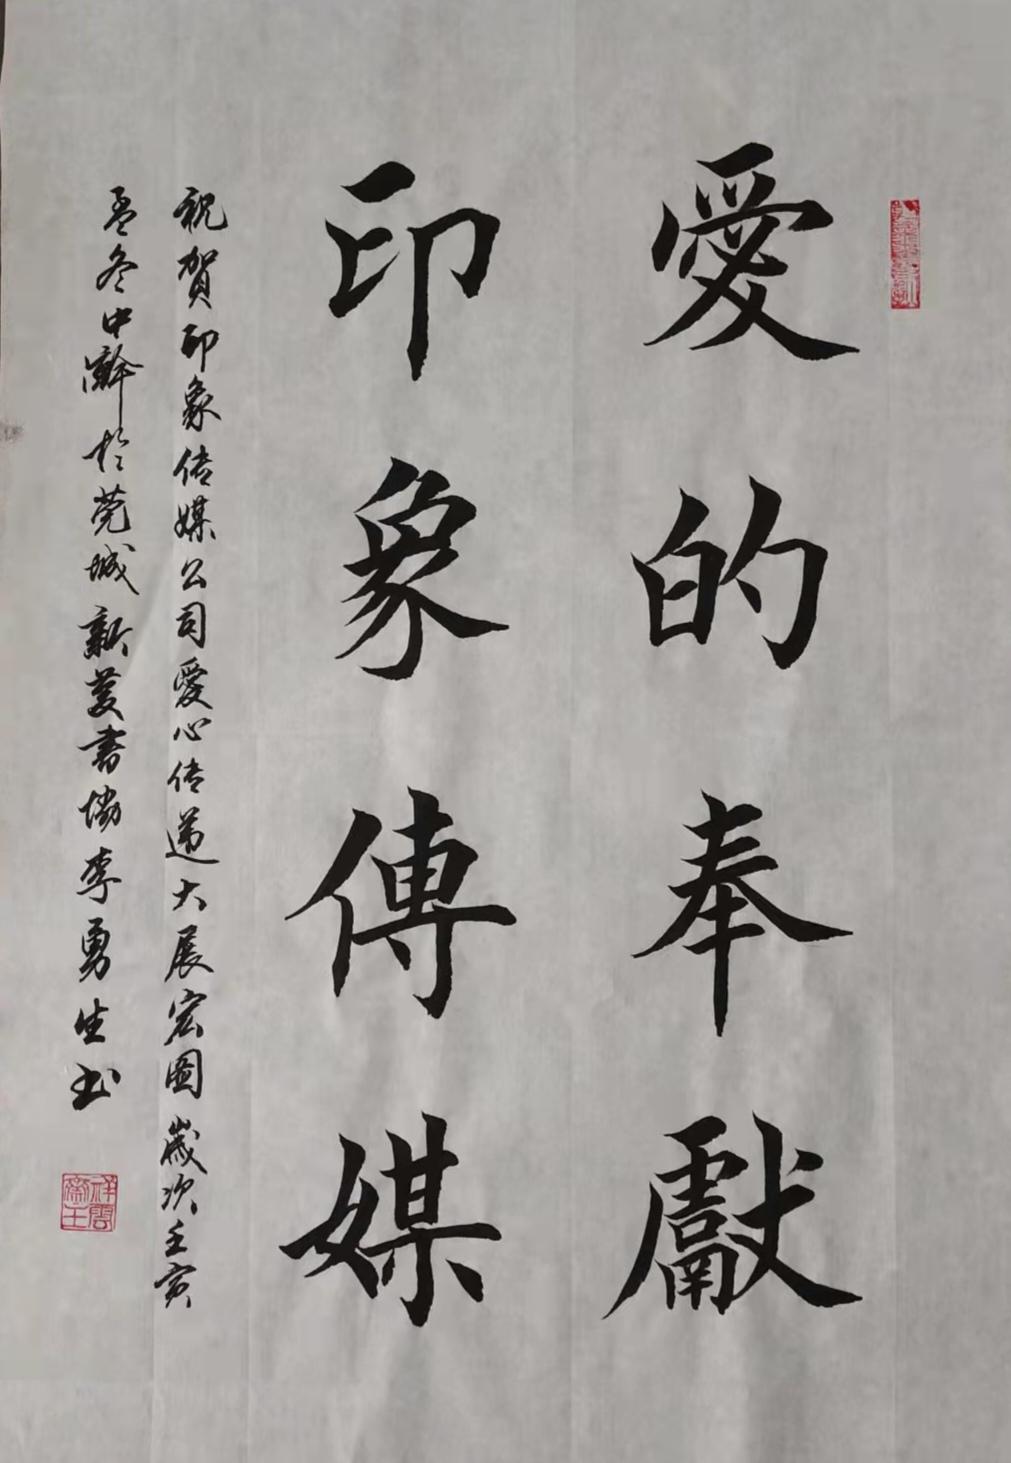 愛的奉獻
印象傳媒
祝賀印象传媒公司愛心传递大展宏圖歲次壬寅
孟冬中澣於莞城新書協李勇生书
祥雲
齋主